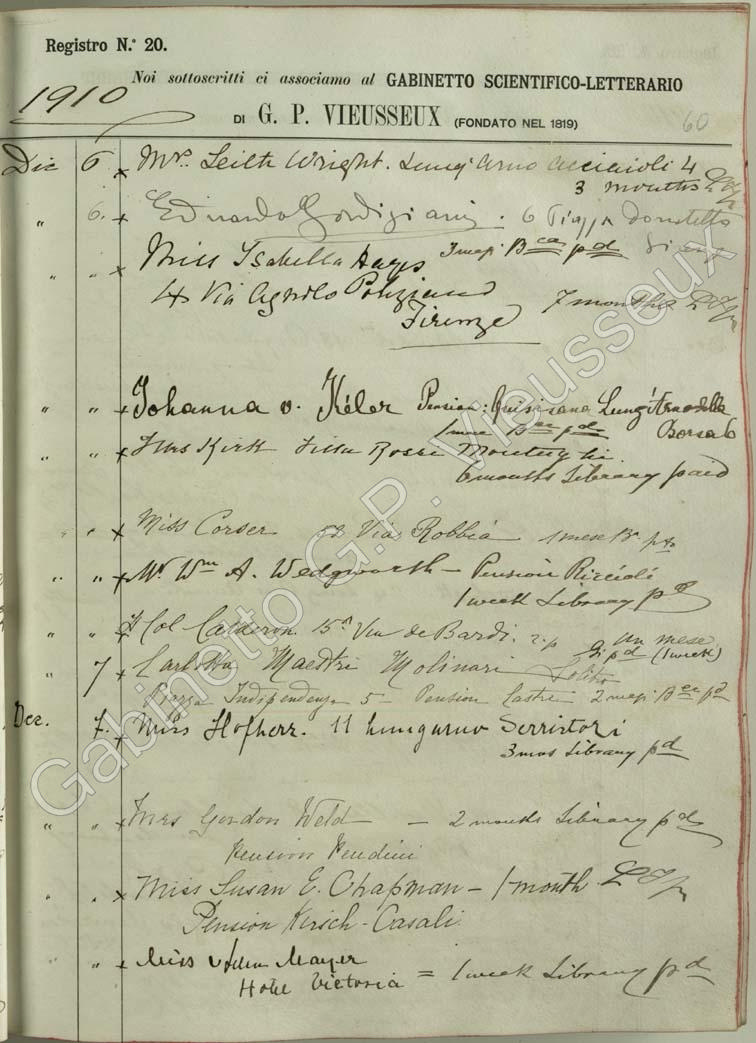 Registro N.° 20.
Noi sottoscritti ci associamo al GABINETTO SCIENTIFICO-LETTERARIO
1910
DI G. P. VIEUSSEUX (FONDATO NEL 1819)
60
Dic 6 x Mrs. Leith Wright. Lung' Arno Acciaioli 4
3 months
" 6. x Edoardo Gordigiani. 6 Piazza Donatello
3 mesi Bca pd
" " x Miss Isabella Hays
4 Via Agnolo Poliziano 7 months
Firenze
" " x Johanna v. Kéler Pension: Quisisana Lung'Arno della
1 mese pd Borsa 6
" " x Mrs Kirk Villa Rossi
6 months Library paid
" " x Miss Corser Via Robbia 1 mese
" " x Mr. Wm A. Wedgworth - Pension Riccioli
1 week Library pd
" " x Col Calderon. 15 Via de Bardi. un mese
pd (1 week)
" 7 x Carlotta Maestri Molinari
Piazza Indipendenza 5 - Pension Castri 2 mesi Bca pd
Dec. 7. x Miss Hofherr. 11 Lungarno Serristori
3 mos Library pd
" " x Mrs Gordon Weld - - 2 months Library pd
Pension Pendini
" " x Miss Susan E. Chapman - 1 month
Pension Kirsch-Casali
" " x Miss Mayer
Hotel Victoria = 1 week Library pd
Gabinetto G.P. Vieusseux